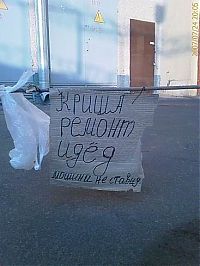 КРИША!
РЕМОНТ
ИДЁД
МОШИНИ НЕ СТАВИЯ
2007/02/24 20:05